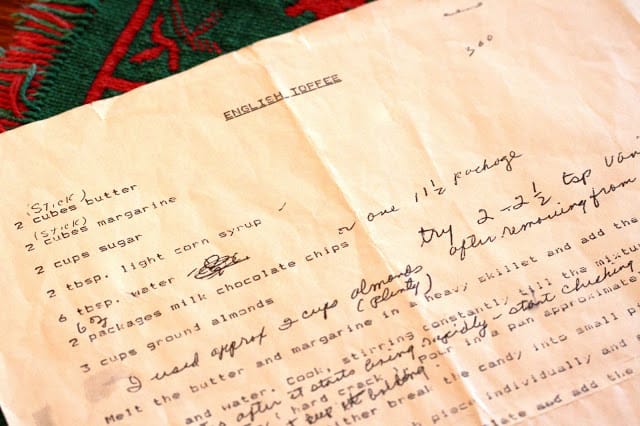 300
ENGLISH TOFFEE
(Stick)
2 cubes butter
(Stick)
2 cubes margarine
2 cups sugar
2 tbsp. light corn syrup ✓
6 tbsp. water
6 oz
2 packages milk chocolate chips or one 11 1/2 package
3 cups ground almonds
I used approx 2 cups almonds (Plenty)
try 2 - 2 1/2 tsp van
after removing from
Melt the butter and margarine in heavy skillet and add the
and water. Cook, stirring constantly till the mixtur
after it starts rapidly - start checking
hard crack pour in a pan approximate
either break the candy into small p
piece individually and
late and add the